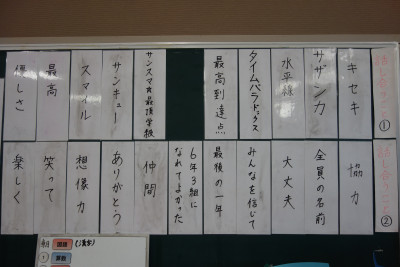 ①
キセキ
サザンカ
水平線
タイムパラドックス
最高到達点
サンスマ☆最頂学級
サンキュー
スマイル
最高
優しさ
②
協力
全員の名前
大丈夫
みんなを信じて
最後の一年
6年3組に
なれてよかった
仲間
ありがとう
想像力
笑って
楽しく